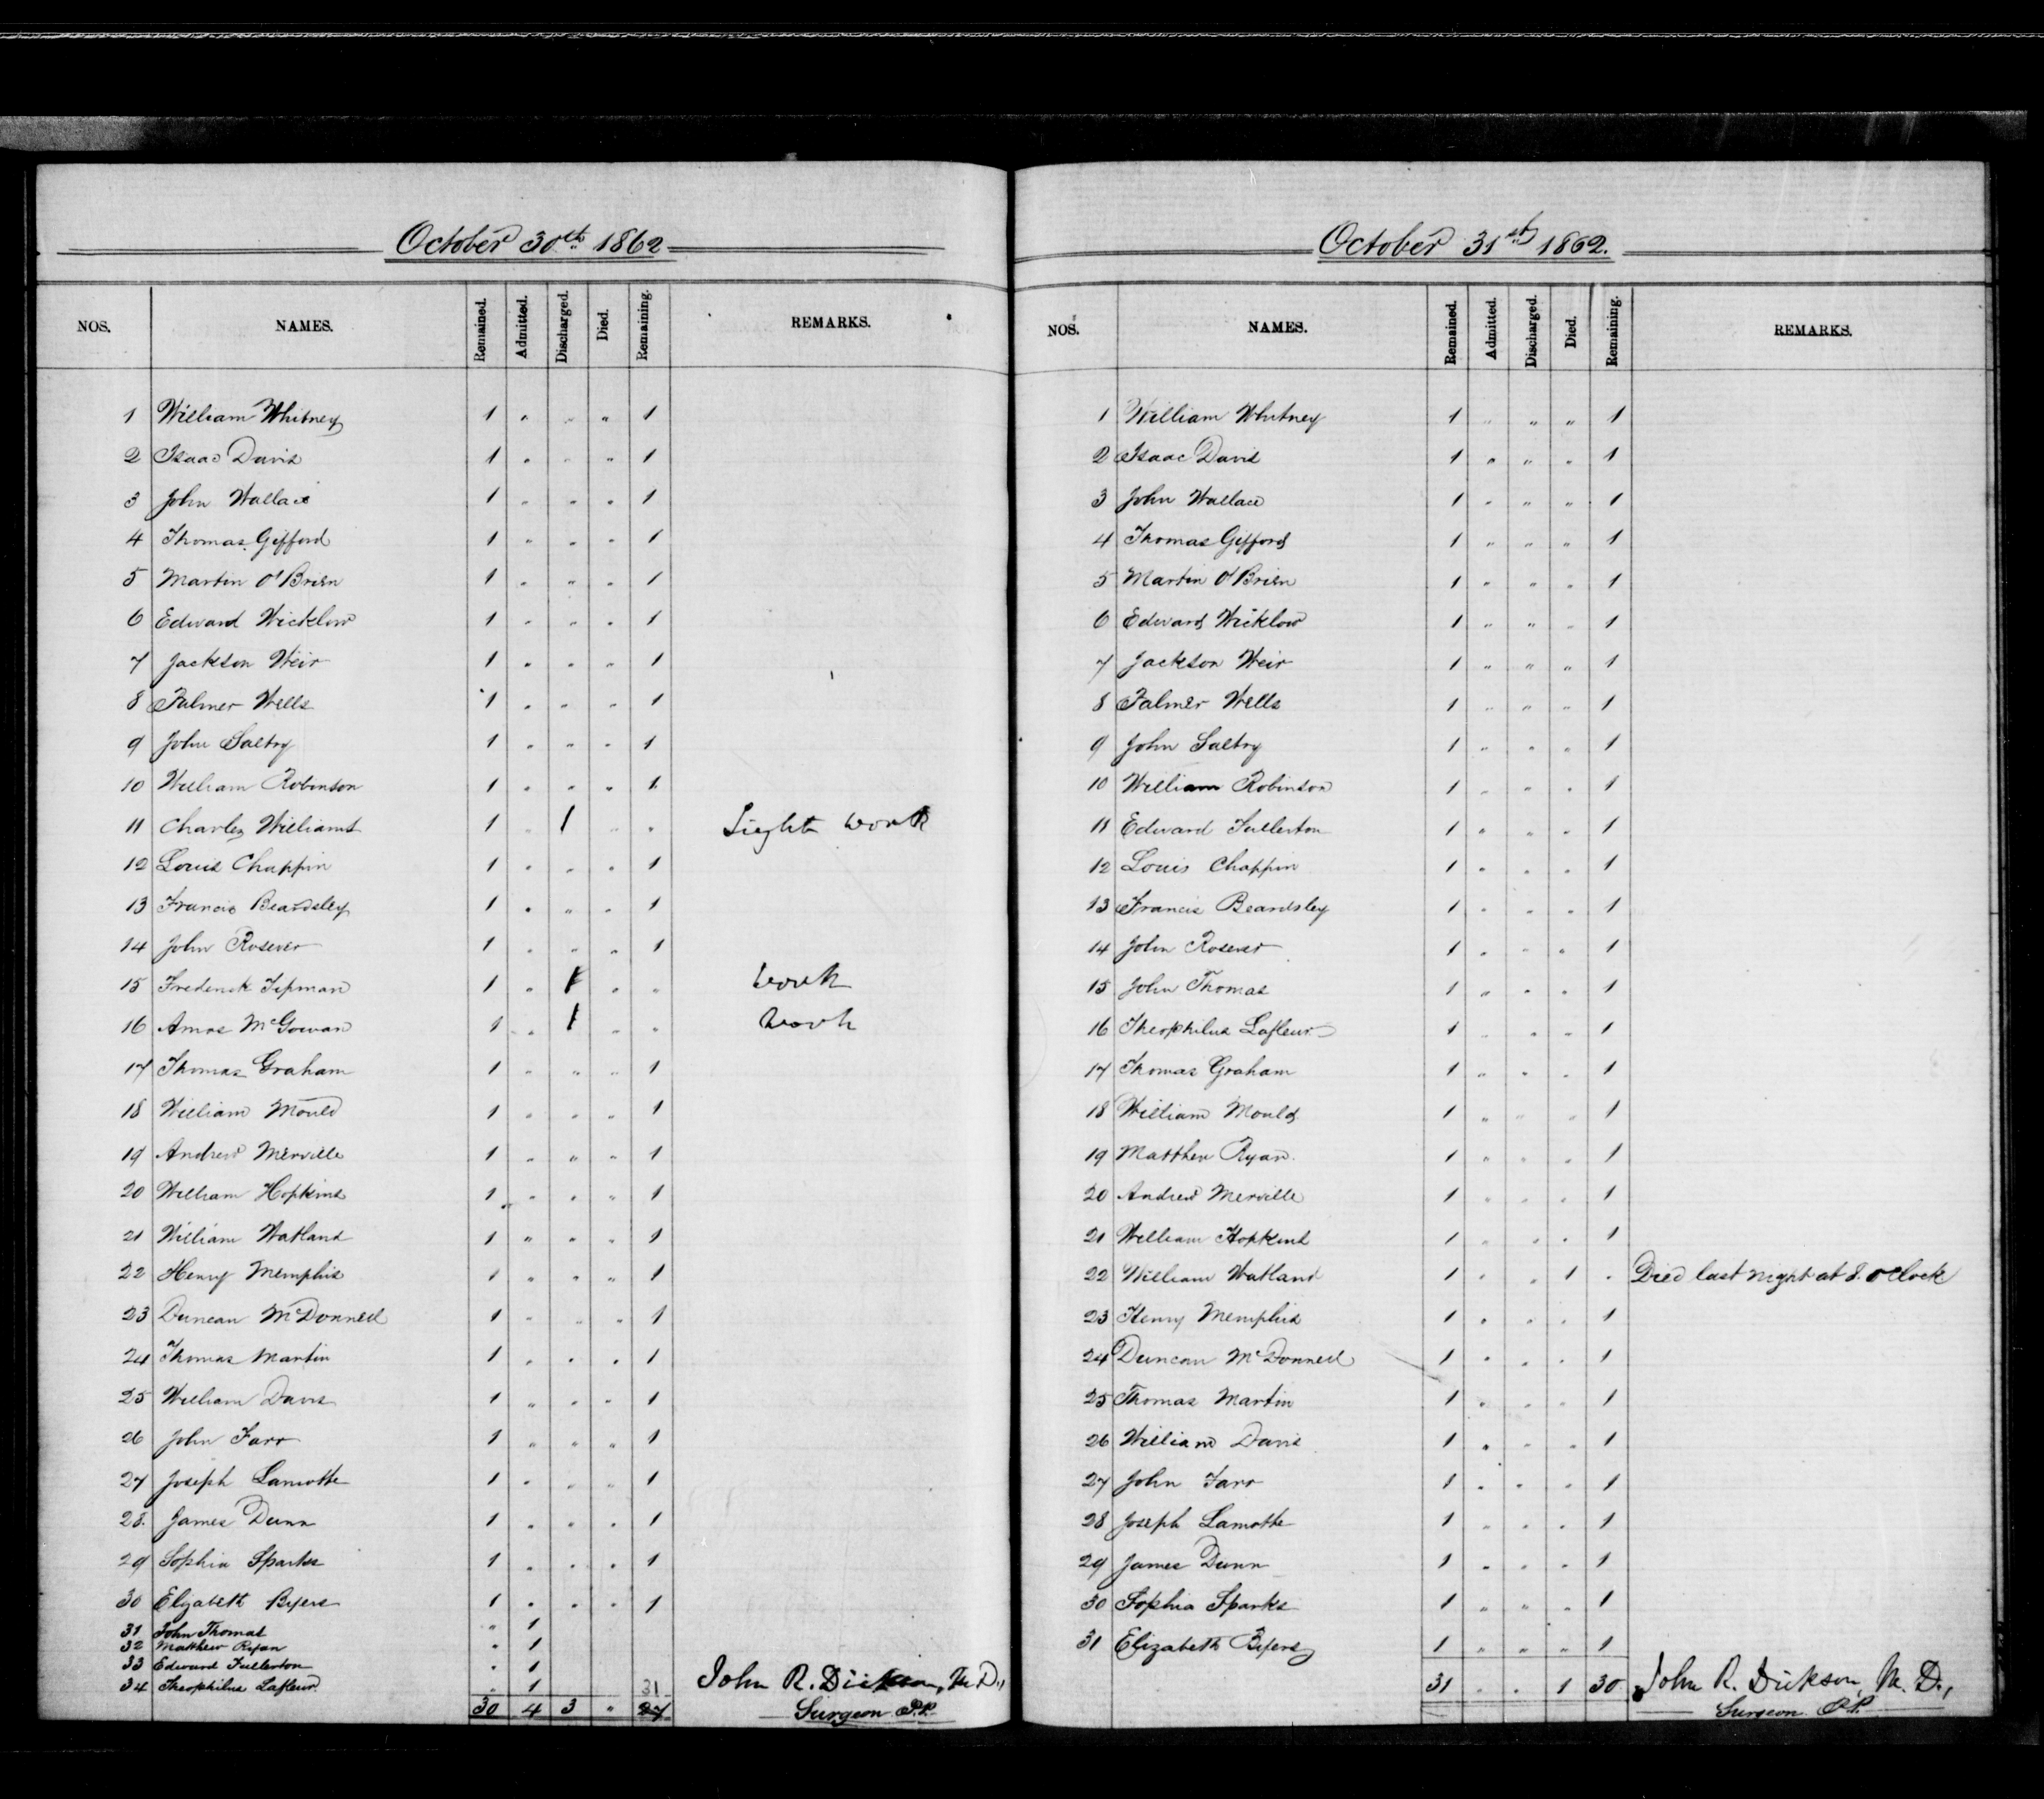 October 30th 1862
NOS. NAMES. Remained. Admitted. Discharged. Died. Remaining. REMARKS.
1 William Whitney 1 " " " 1
2 Isaac Davis 1 " " " 1
3 John Wallace 1 " " " 1
4 Thomas Gifford 1 " " " 1
5 Martin O'Brien 1 " " " 1
6 Edward Wicklow 1 " " " 1
7 Jackson Weir 1 " " " 1
8 Palmer Wells 1 " " " 1
9 John Saltry 1 " " " 1
10 William Robinson 1 " " " 1
11 Charles Williams 1 " 1 " " Light work
12 Louis Chappin 1 " " " 1
13 Francis Beardsley 1 " " " 1
14 John Rosever 1 " " " 1
15 Frederick 1 " 1 " " Work
16 Amos McGowan 1 " 1 " " Work
17 Thomas Graham 1 " " " 1
18 William Mould 1 " " " 1
19 Andrew Merville 1 " " " 1
20 William Hopkins 1 " " " 1
21 William Watland 1 " " " 1
22 Henry Memphis 1 " " " 1
23 Duncan McDonnell 1 " " " 1
24 Thomas Martin 1 " " " 1
25 William Davis 1 " " " 1
26 John Farr 1 " " " 1
27 Joseph Lamotte 1 " " " 1
28. James Dunn 1 " " " 1
29 Sophia Sparks 1 " " " 1
30 Elizabeth Byers 1 " " " 1
31 John Thomas " 1
32 Matthew Ryan " 1
33 Edward Fullerton " 1
34 Theophilus Lafleur " 1 31
30 4 3 " 27
John R. Dickson, M.D.,
Surgeon P.P.
October 31st 1862.
NOS. NAMES. Remained. Admitted. Discharged. Died. Remaining. REMARKS.
1 William Whitney 1 " " " 1
2 Isaac Davis 1 " " " 1
3 John Wallace 1 " " " 1
4 Thomas Gifford 1 " " " 1
5 Martin O'Brien 1 " " " 1
6 Edward Wicklow 1 " " " 1
7 Jackson Weir 1 " " " 1
8 Palmer Wells 1 " " " 1
9 John Saltry 1 " " " 1
10 William Robinson 1 " " " 1
11 Edward Fullerton 1 " " " 1
12 Louis Chappin 1 " " " 1
13 Francis Beardsley 1 " " " 1
14 John Rosever 1 " " " 1
15 John Thomas 1 " " " 1
16 Theophilus Lafleur 1 " " " 1
17 Thomas Graham 1 " " " 1
18 William Mould 1 " " " 1
19 Matthew Ryan. 1 " " " 1
20 Andrew Merville 1 " " " 1
21 William Hopkins 1 " " " 1
22 William Watland 1 " " 1 " Died last night at 8. oClock
23 Henry Memphis 1 " " " 1
24 Duncan McDonnell 1 " " " 1
25 Thomas Martin 1 " " " 1
26 William Davis 1 " " " 1
27 John Farr 1 " " " 1
28 Joseph Lamotte 1 " " " 1
29 James Dunn 1 " " " 1
30 Sophia Sparks 1 " " " 1
31 Elizabeth Byers 1 " " " 1
31 " " 1 30
John R. Dickson, M.D.,
Surgeon P.P.